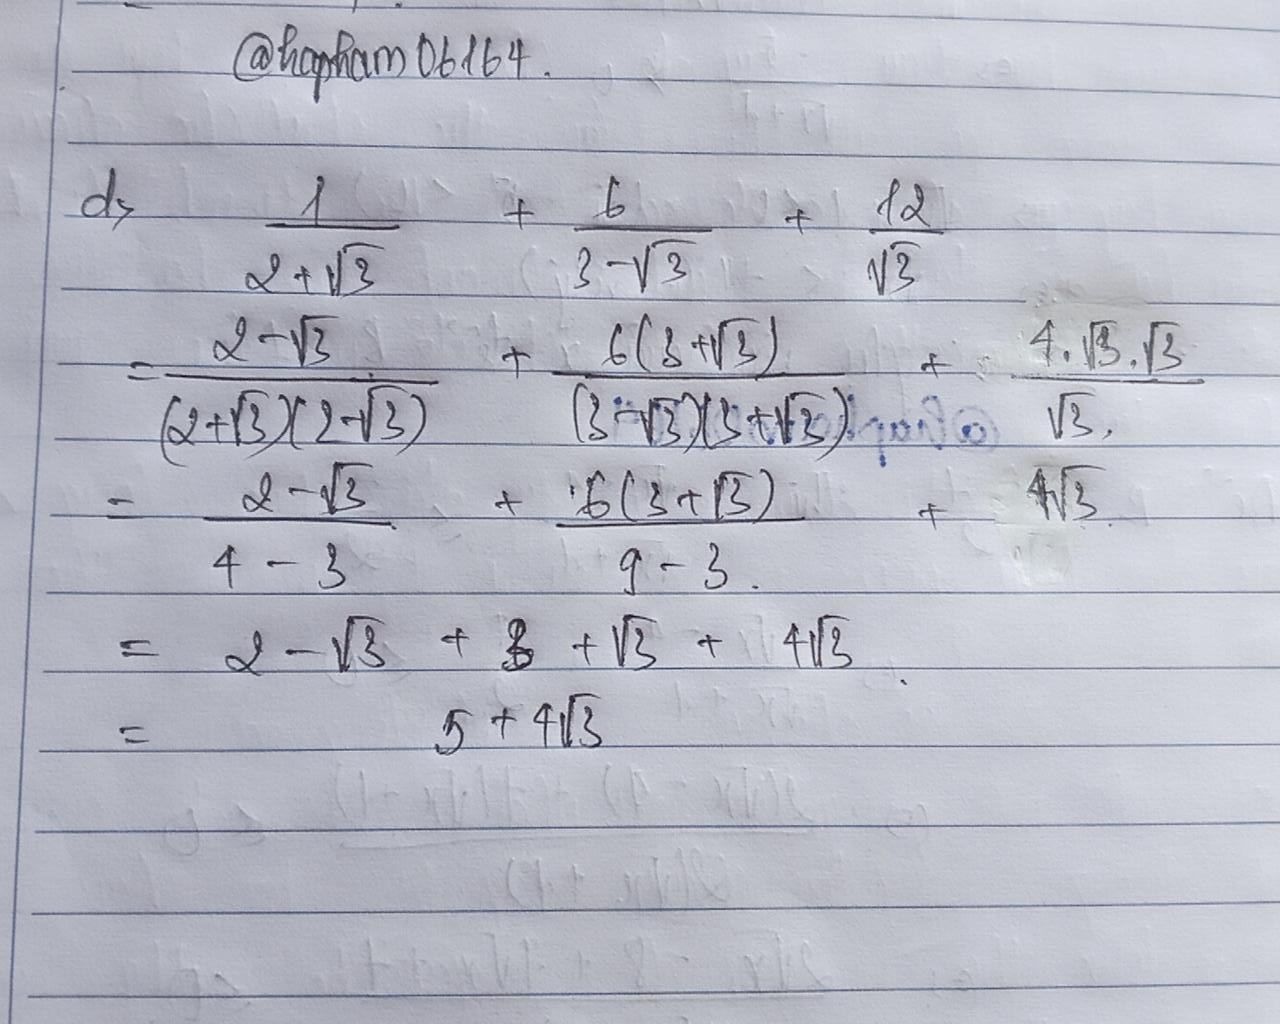 @hapham06164.
d, 1/(2+√3) + 6/(3-√3) + 12/√3
= (2-√3)/((2+√3)(2-√3)) + 6(3+√3)/((3-√3)(3+√3)) + 4.√3.√3/√3
= (2-√3)/(4-3) + 6(3+√3)/(9-3) + 4√3
= 2-√3 + 3 + √3 + 4√3
= 5 + 4√3